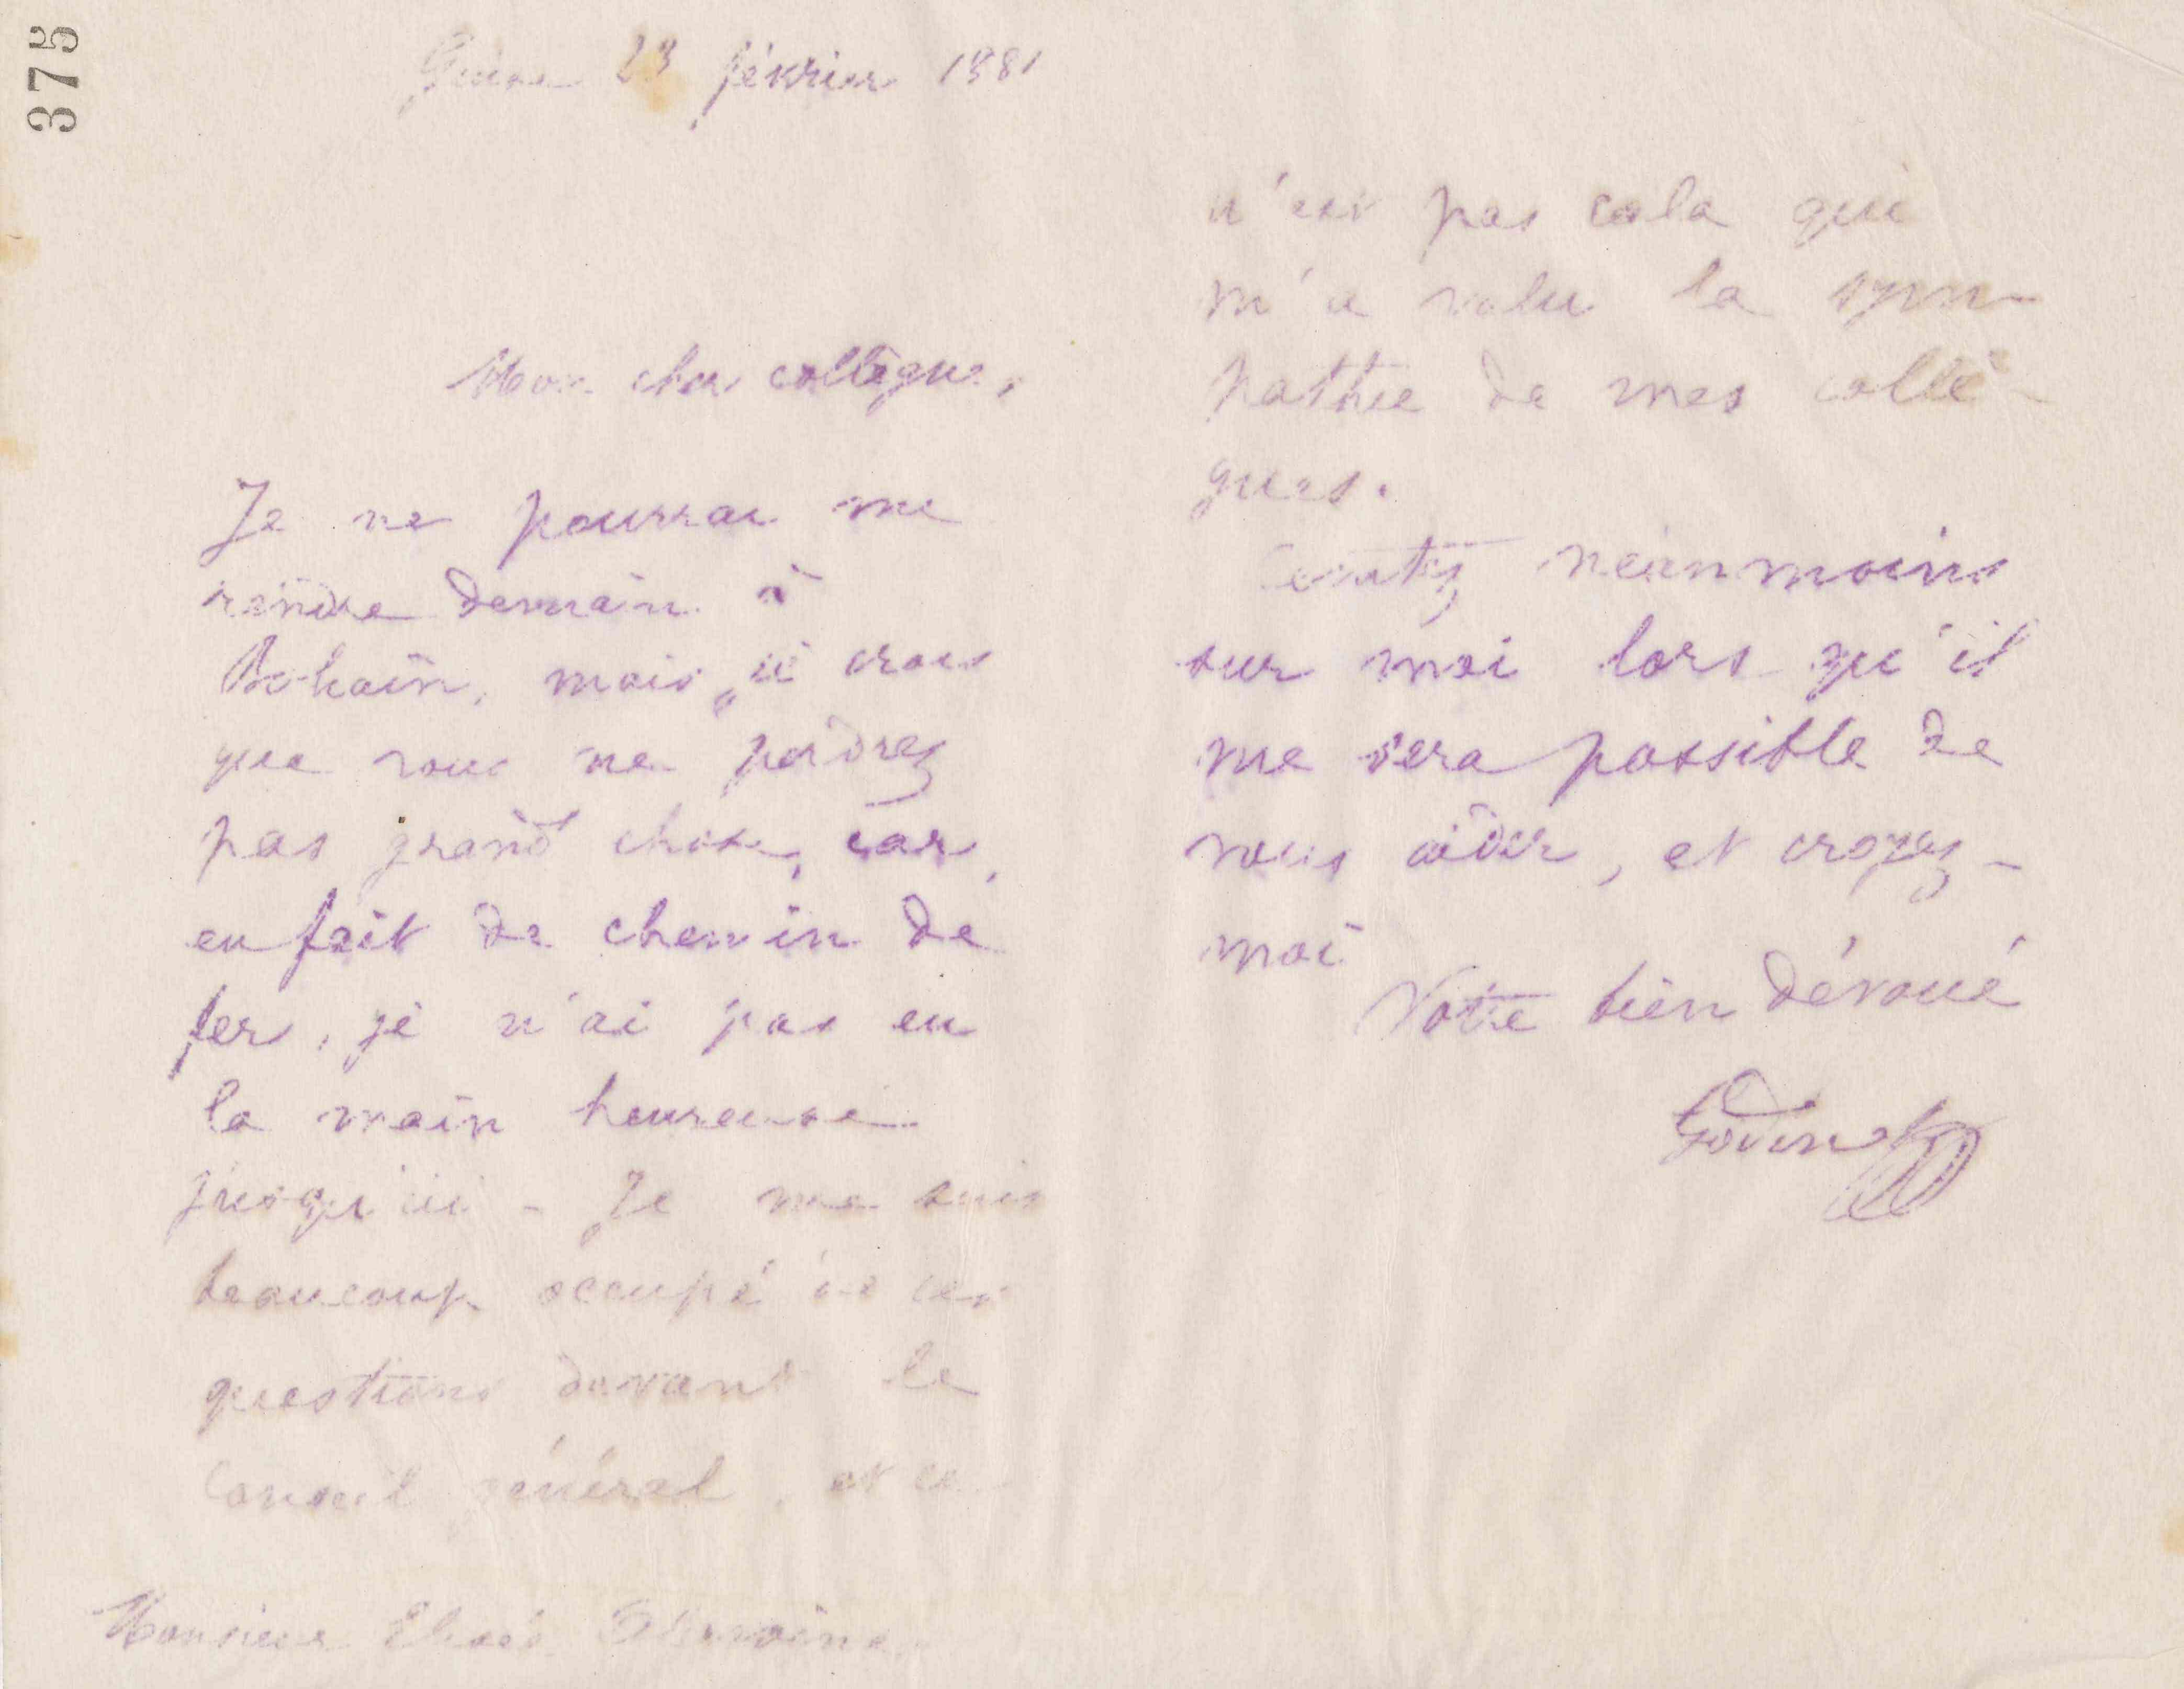 375
Guise 23 février 1881
Mon cher collègue,
Je ne pourrai me
rendre demain à
Bohain, mais je crois
que vous ne perdrez
pas grand chose, car,
en fait de chemin de
fer, je n'ai pas eu
la main heureuse
jusqu'ici - Je me suis
beaucoup occupé de ces
questions devant le
Conseil général, et ce
Monsieur
n'est pas cela qui
m'a valu la sym-
pathie de mes collè-
gues.
Comptez néanmoins
sur moi lors qu'il
me sera possible de
vous aider, et croyez-
moi
Votre bien dévoué
Godin